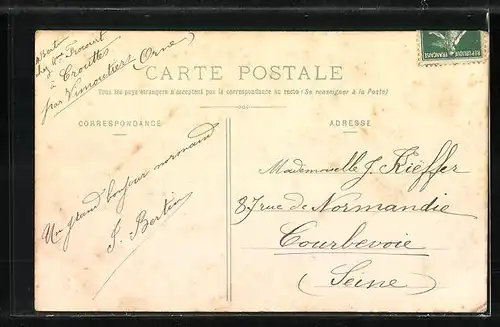 chez Mme Frocourt
à Crouttes
par Vimoutiers (Orne)
CARTE POSTALE
Tous les pays étrangers n'acceptent pas la correspondance au recto (Se renseigner à la Poste)
CORRESPONDANCE
ADRESSE
Un grand bonjour normand
J. Bertin
Mademoiselle J. Kieffer
87 rue de Normandie
Courbevoie
(Seine)